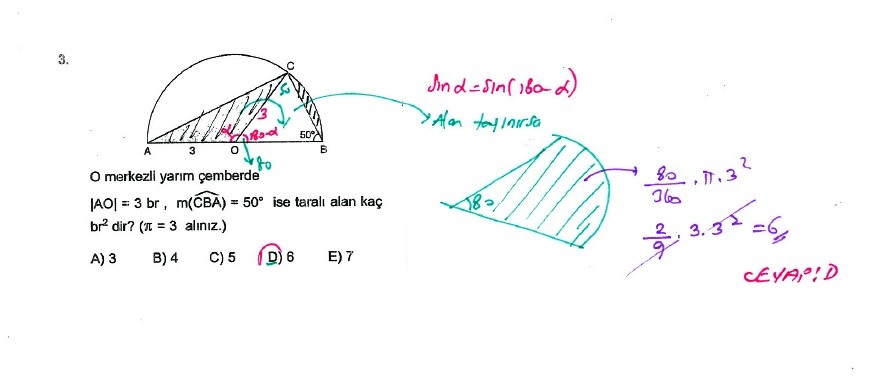 3.
C
50
3
α
180-α
50°
A
3
O
B
80
O merkezli yarım çemberde
|AO| = 3 br , m(CBA) = 50° ise taralı alan kaç
br² dir? (π = 3 alınız.)
A) 3 B) 4 C) 5 D) 6 E) 7
Sinα = Sin(180-α)
Alan taşınırsa
80
80/360 . π . 3²
2/9 . 3 . 3² = 6
CEVAP: D